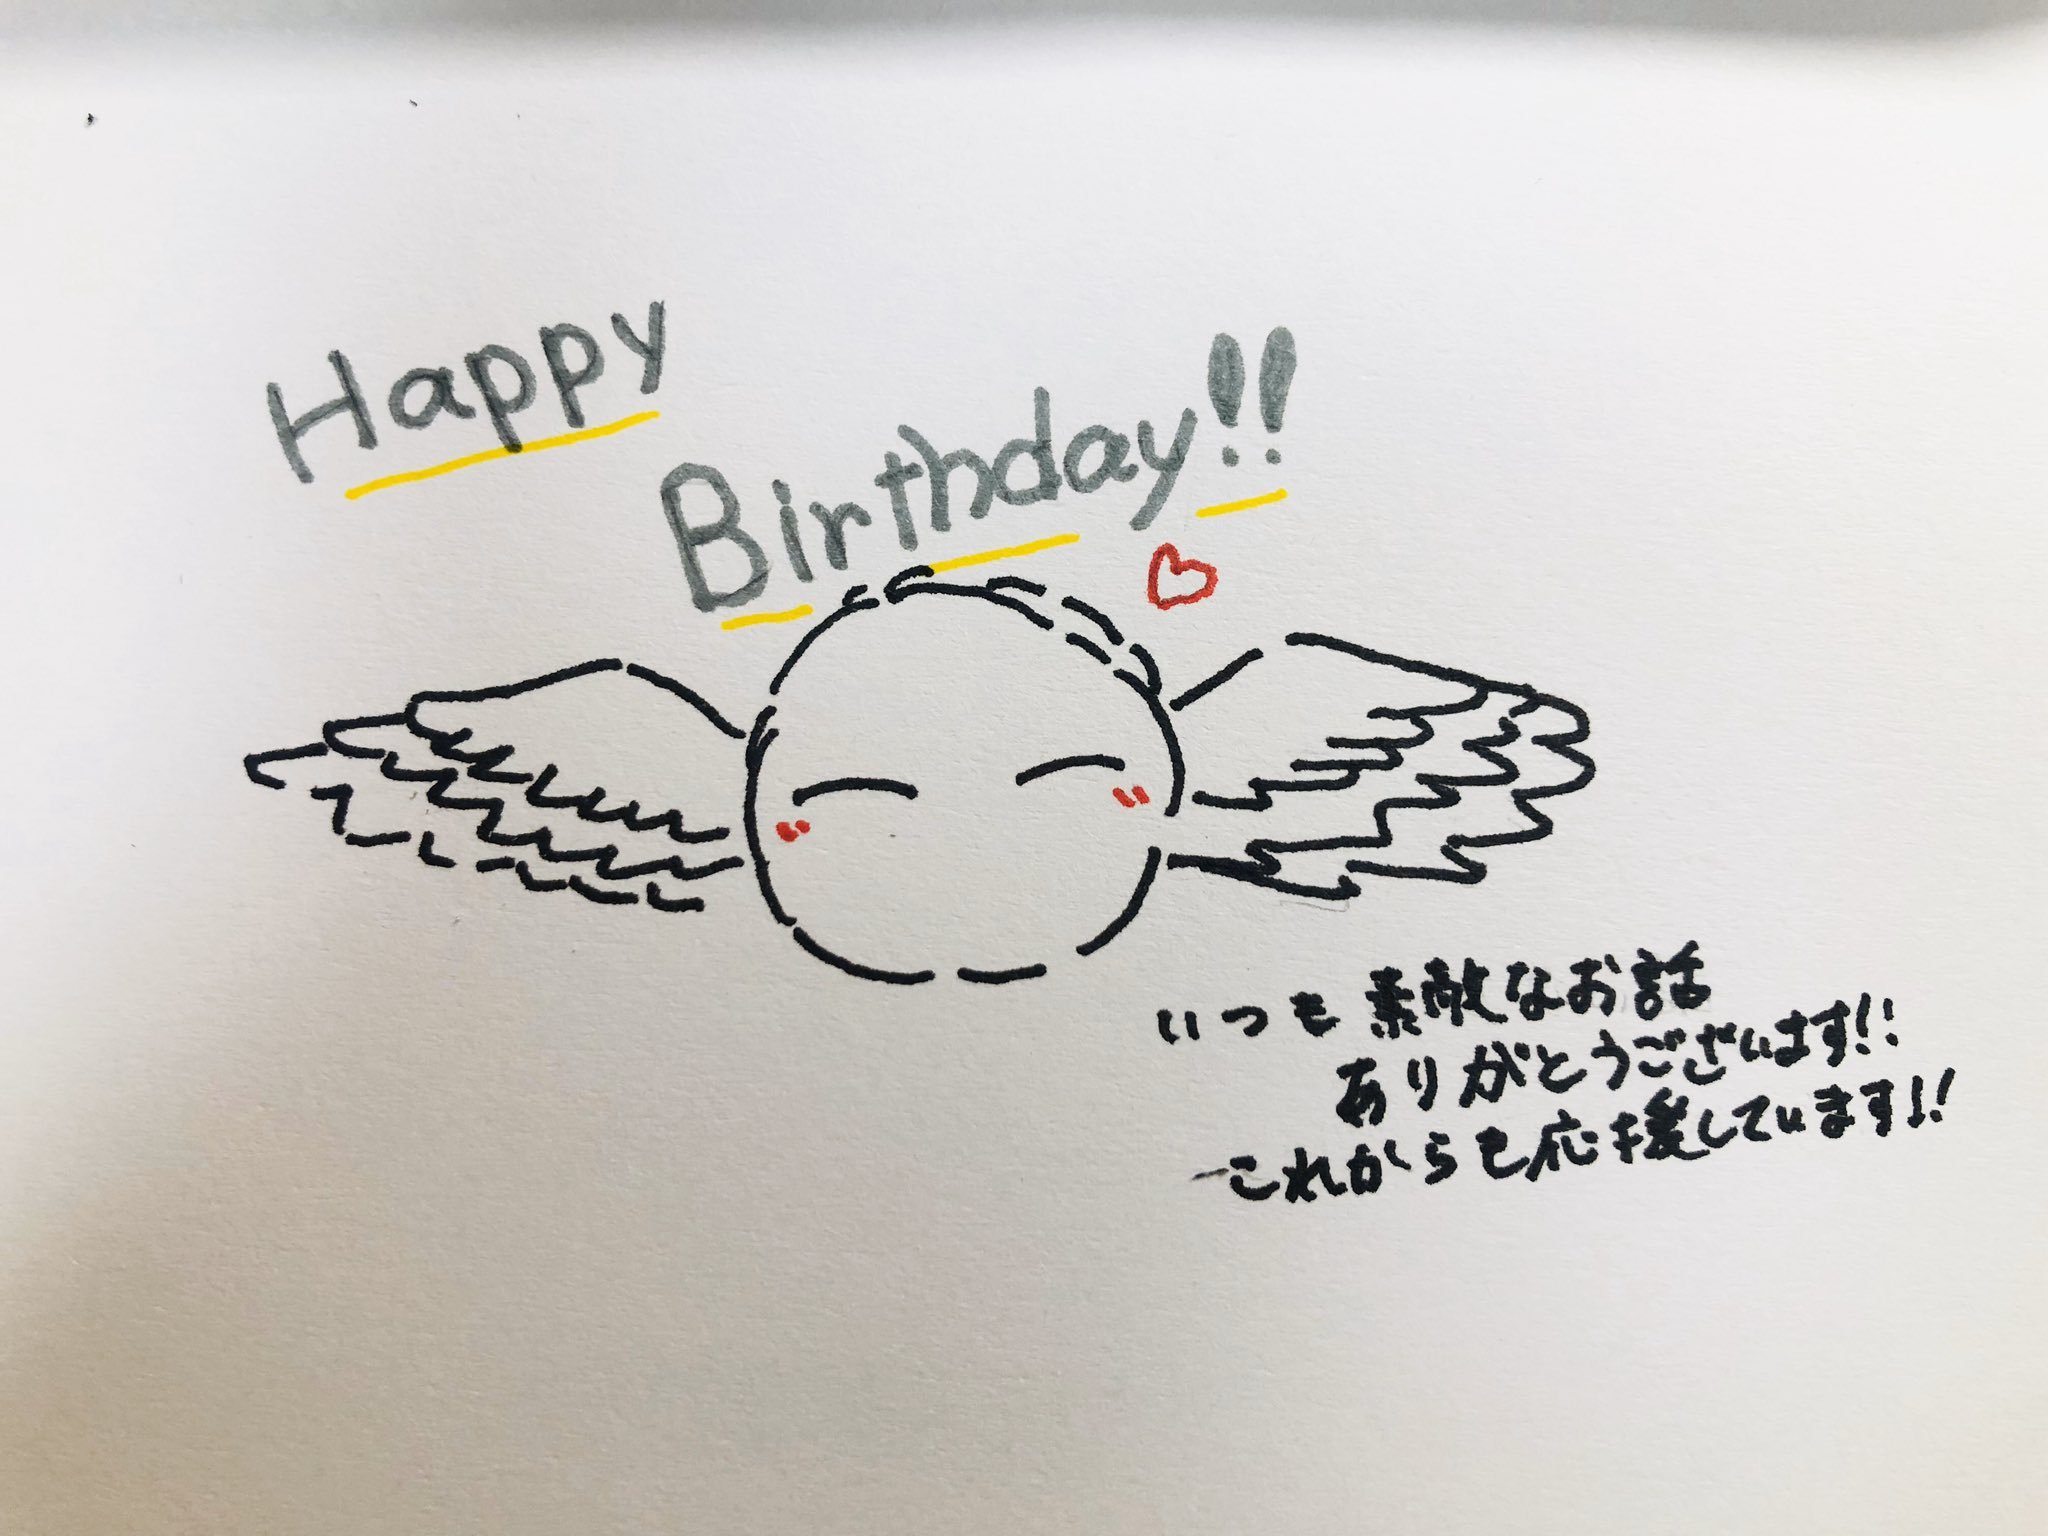 Happy
Birthday!!
いつも素敵なお話
ありがとうございます!!
これからも応援しています!!